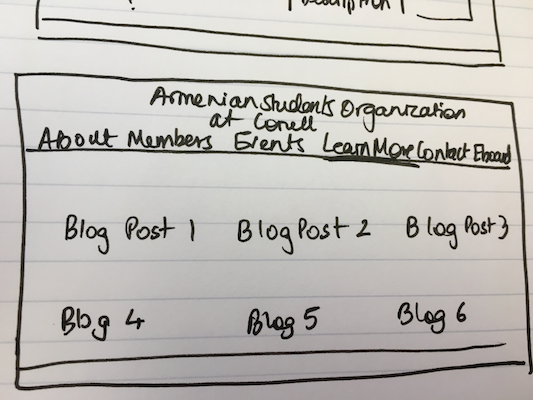 Description
Armenian Students Organization
at Conell
About Members Events Learn More Contact Eboard
Blog Post 1 Blog Post 2 Blog Post 3
Blog 4 Blog 5 Blog 6